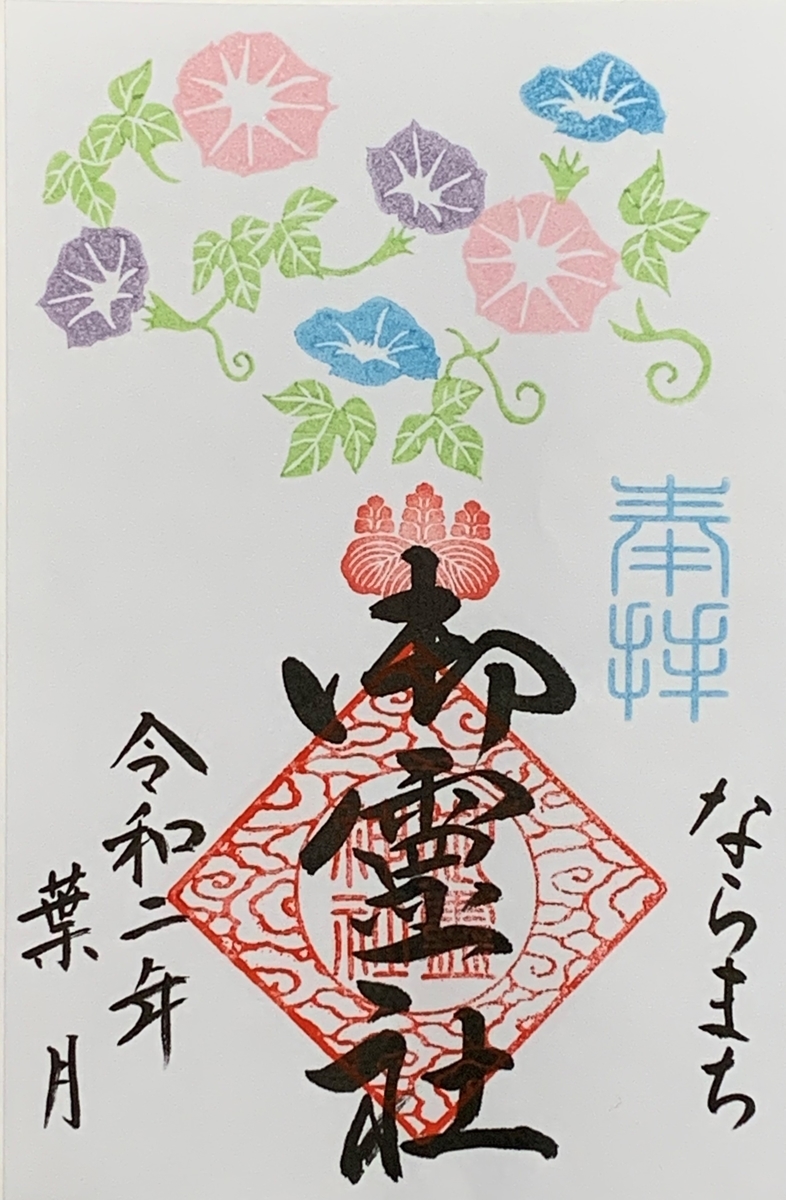 奉拝
ならまち
御霊社
令和二年
葉月